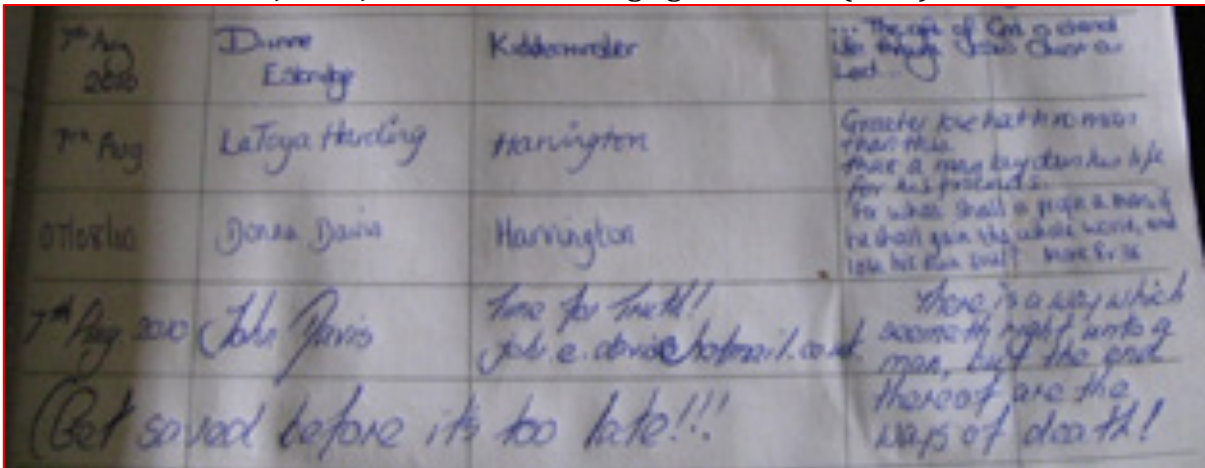 7th Aug
2010
Dianne
Kidderminster
... The gift of God is eternal
life through Jesus Christ our
Lord...
7th Aug
LaToya Harding
Harvington
Greater love hath no man
than this,
that a man lay down his life
for his friends.
07/08/10
Donna Davis
Harvington
For what shall it profit a man, if
he shall gain the whole world, and
lose his own soul? Mark 8v36
7th Aug 2010
John Davis
Time for Truth!
There is a way which
seemeth right unto a
man, but the end
thereof are the
ways of death!
(Get saved before it's too late!!!